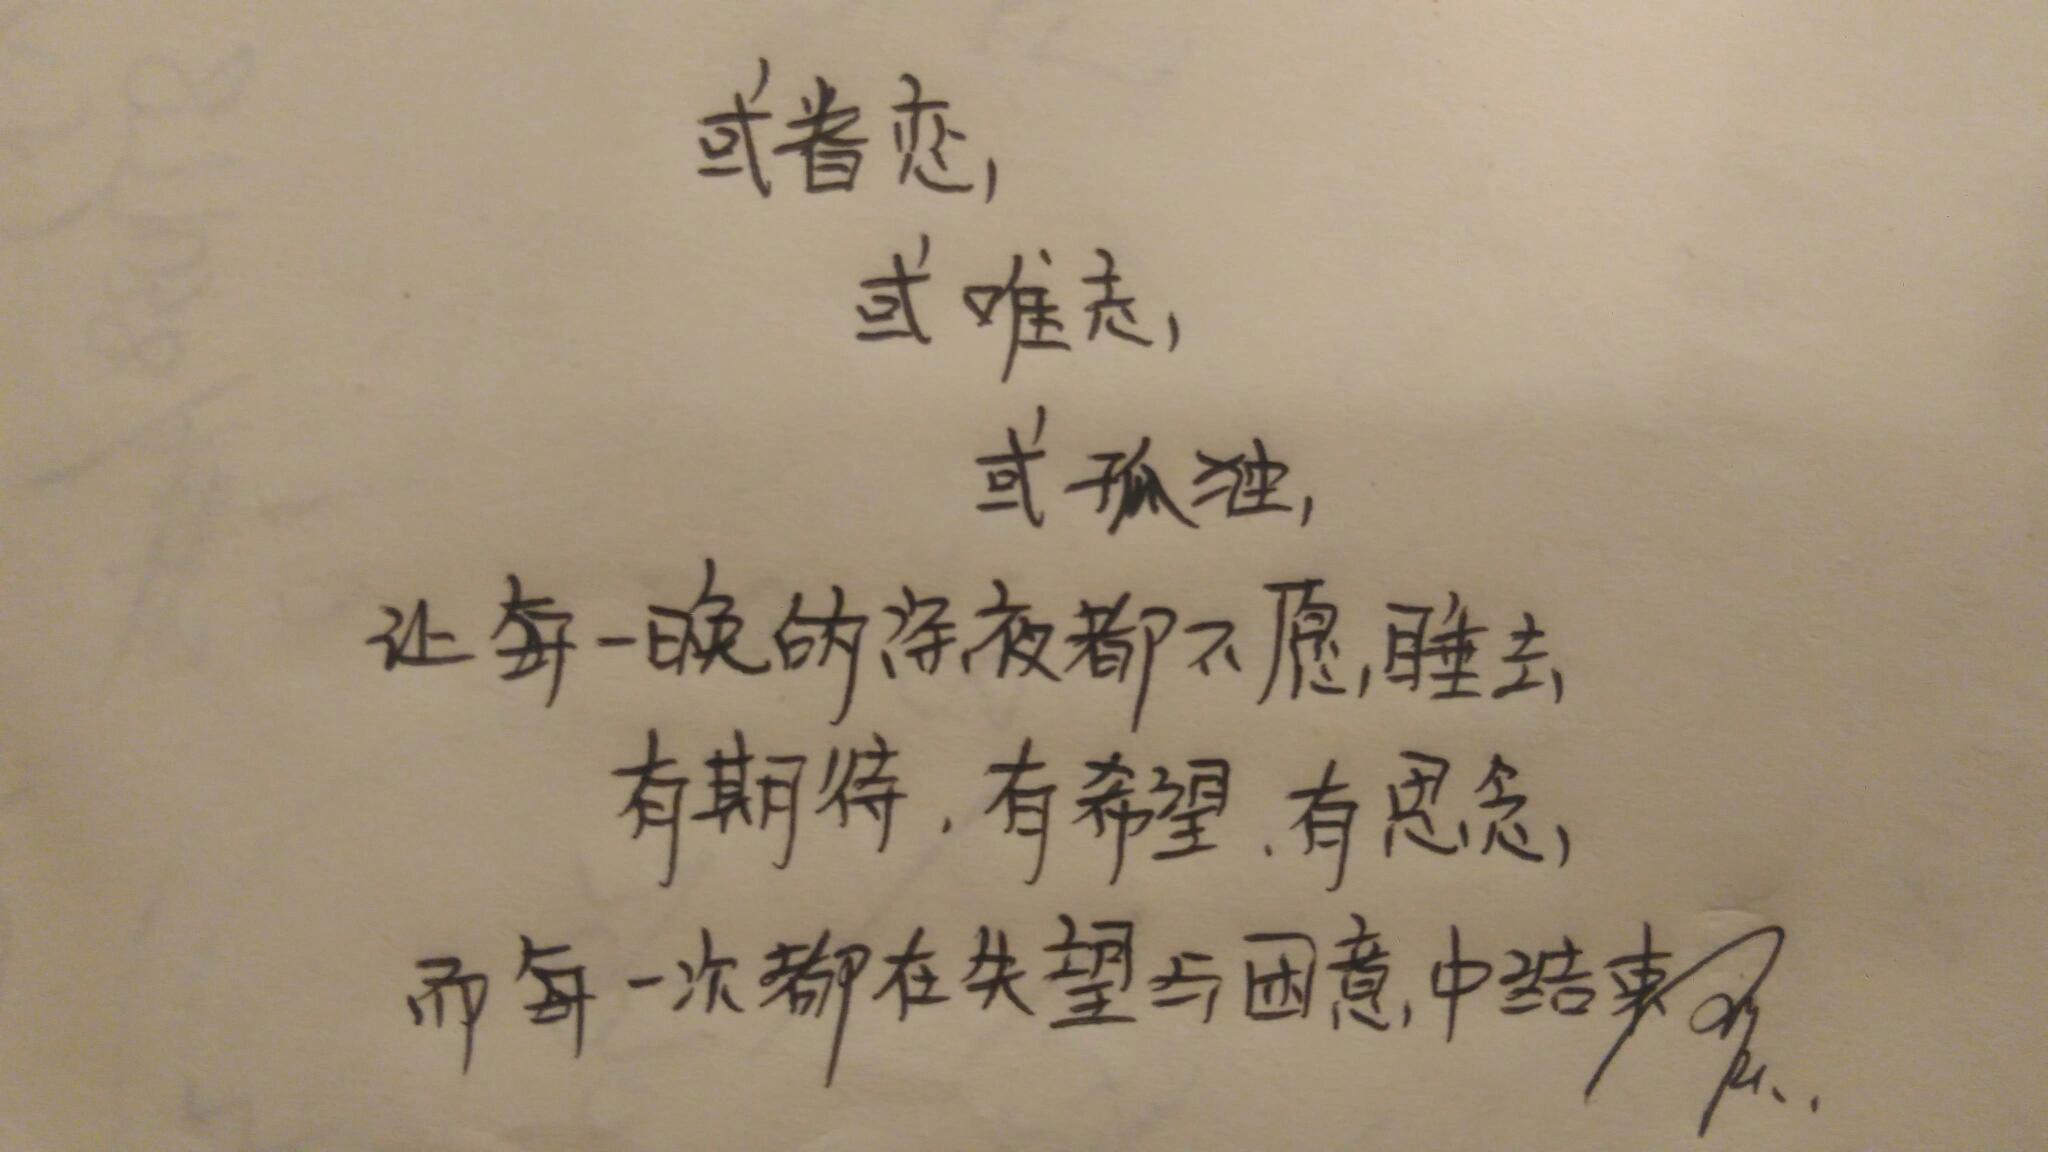 或眷恋,
或唯志,
或孤独,
让每一晚的深夜都不愿睡去,
有期待、有希望、有思念,
而每一次都在失望与困意中结束